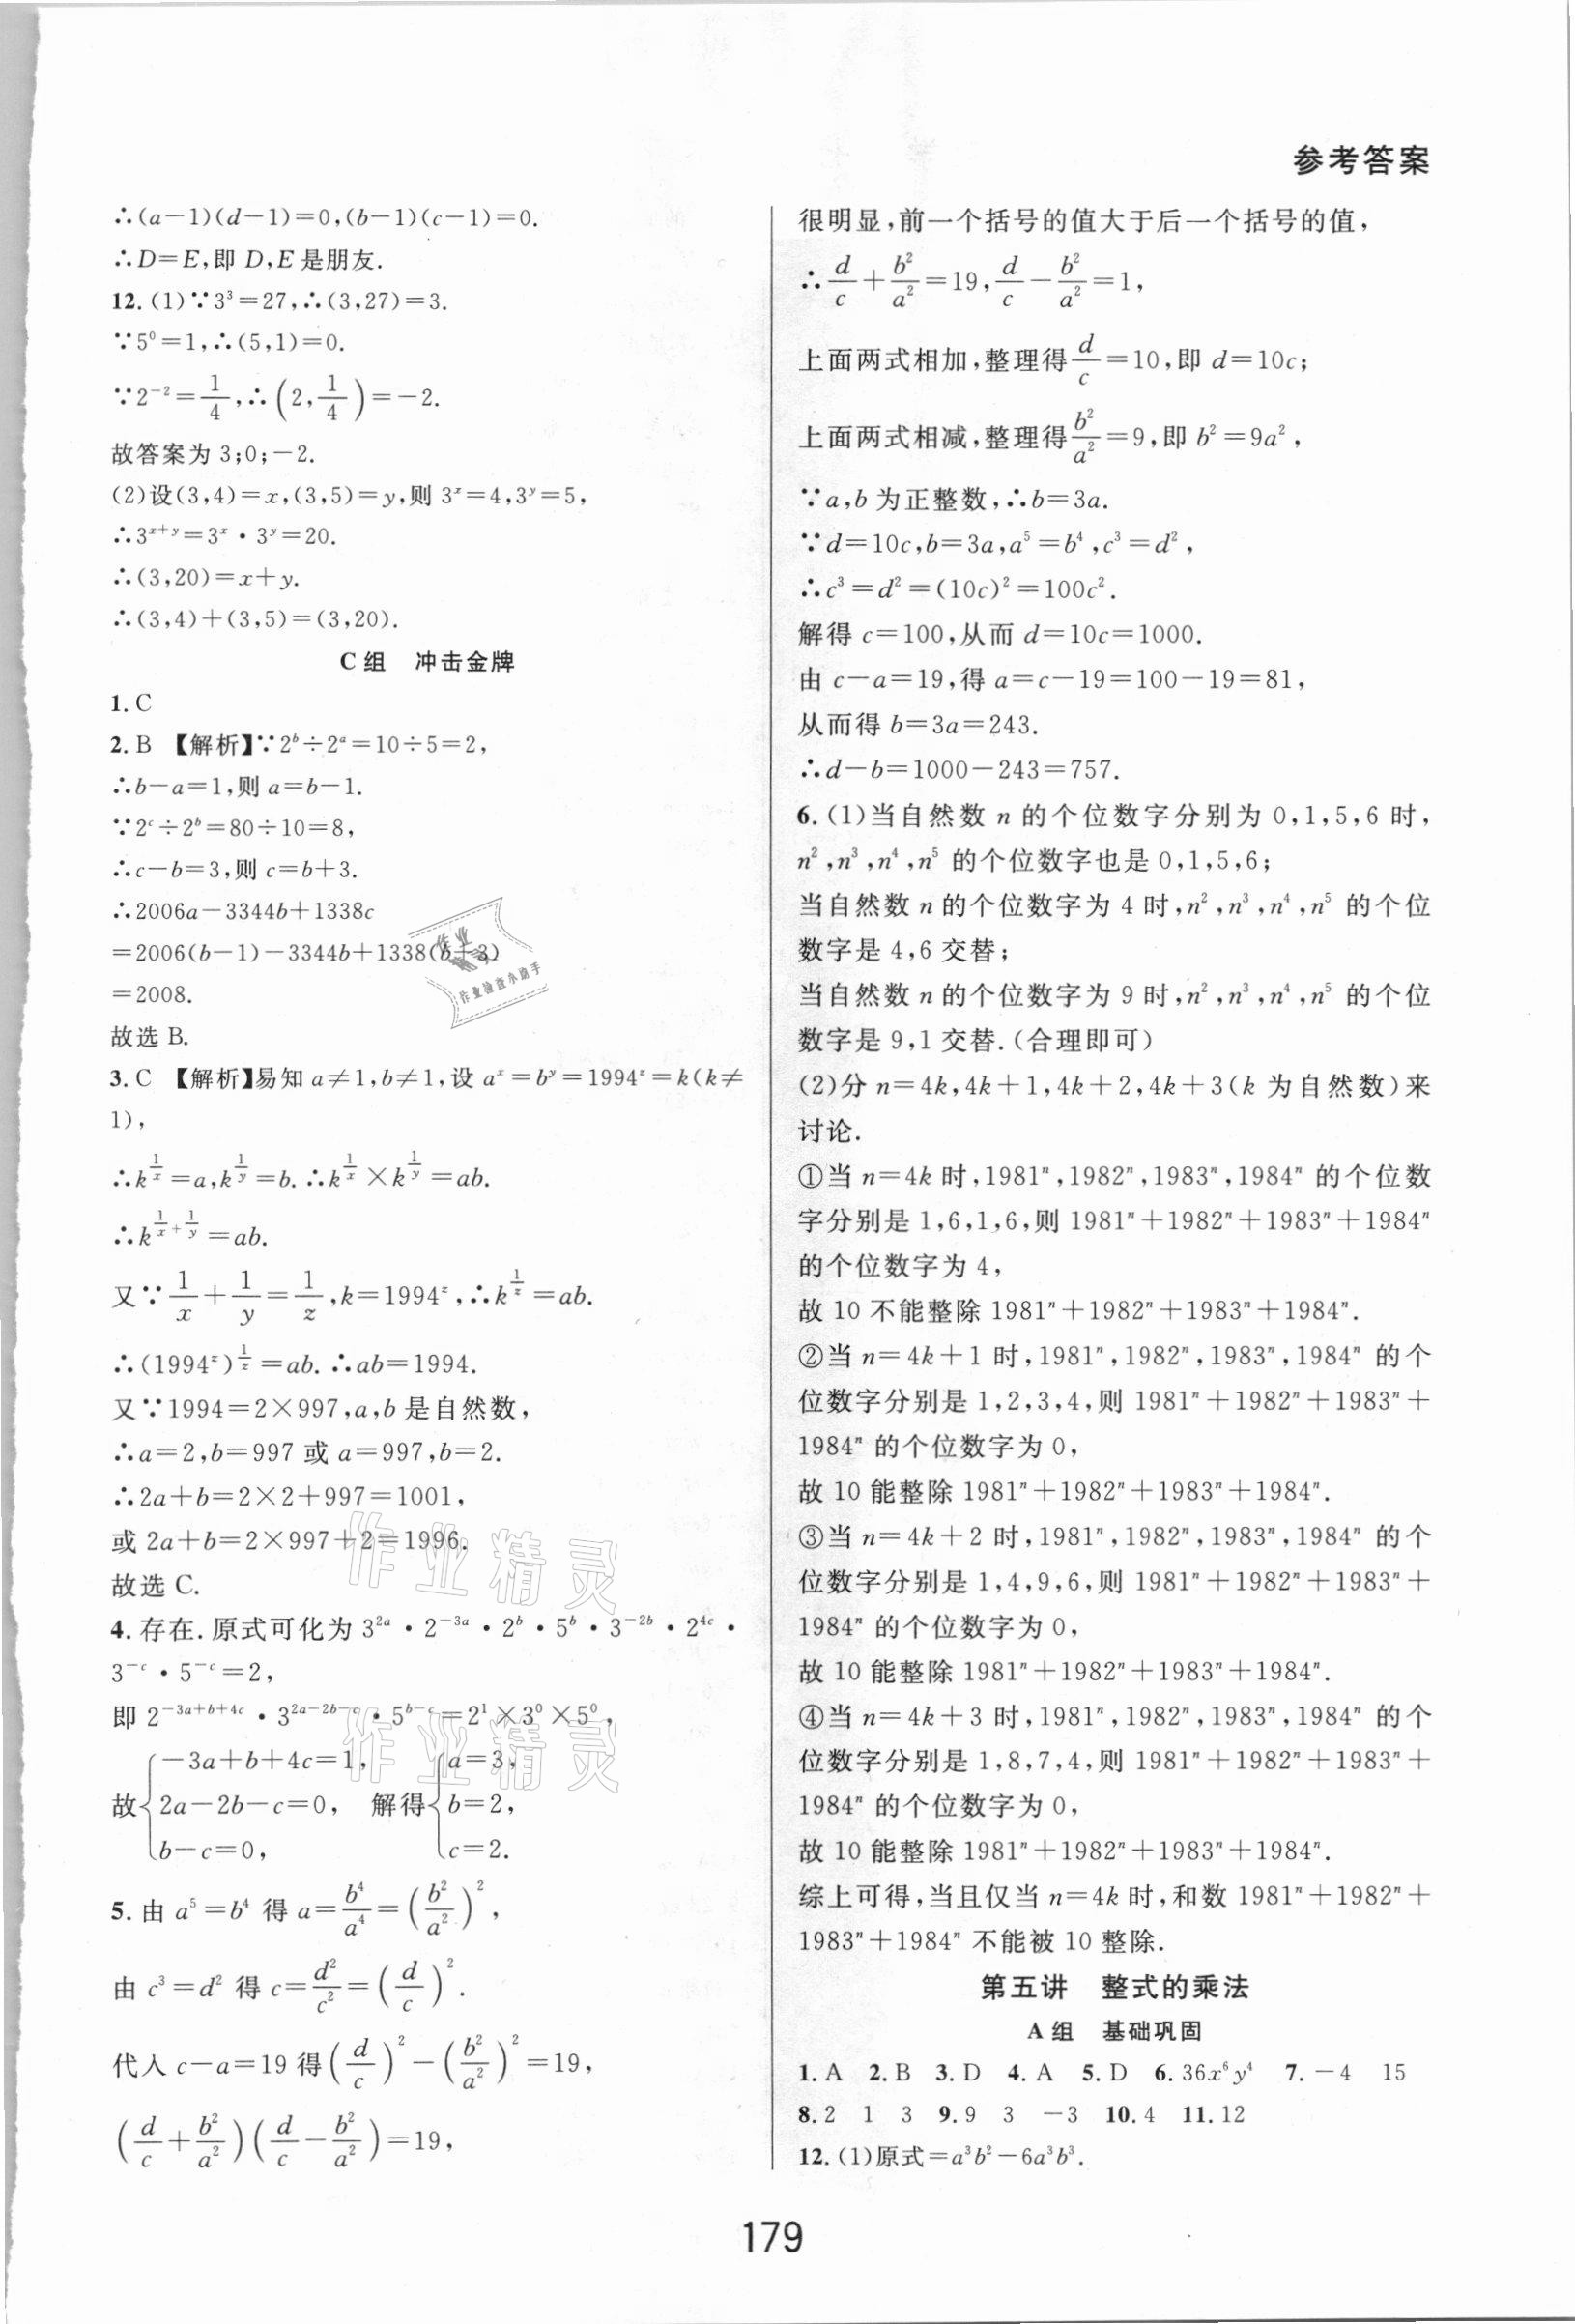 参考答案
∴(a−1)(d−1)=0,(b−1)(c−1)=0.
∴D=E,即 D,E 是朋友.
12.(1)∵3³=27,∴(3,27)=3.
∵5⁰=1,∴(5,1)=0.
∵2⁻²=1/4,∴(2,1/4)=−2.
故答案为 3;0;−2.
(2)设(3,4)=x,(3,5)=y,则 3^x=4,3^y=5,
∴3^(x+y)=3^x·3^y=20.
∴(3,20)=x+y.
∴(3,4)+(3,5)=(3,20).
C 组 冲击金牌
1.C
2.B 【解析】∵2^b÷2^a=10÷5=2,
∴b−a=1,则 a=b−1.
∵2^c÷2^b=80÷10=8,
∴c−b=3,则 c=b+3.
∴2006a−3344b+1338c
=2006(b−1)−3344b+1338(b+3)
=2008.
故选 B.
3.C 【解析】易知 a≠1,b≠1,设 a^x=b^y=1994^z=k(k≠
1),
∴k^(1/x)=a,k^(1/y)=b.∴k^(1/x)×k^(1/y)=ab.
∴k^(1/x+1/y)=ab.
又∵1/x+1/y=1/z,k=1994^z,∴k^(1/z)=ab.
∴(1994^z)^(1/z)=ab.∴ab=1994.
又∵1994=2×997,a,b 是自然数,
∴a=2,b=997 或 a=997,b=2.
∴2a+b=2×2+997=1001,
或 2a+b=2×997+2=1996.
故选 C.
4.存在.原式可化为 3^(2a)·2^(−3a)·2^b·5^b·3^(−2b)·2^(4c)·
3^(−c)·5^(−c)=2,
即 2^(−3a+b+4c)·3^(2a−2b−c)·5^(b−c)=2¹×3⁰×5⁰,
故{−3a+b+4c=1, 2a−2b−c=0, b−c=0, 解得{a=3, b=2, c=2.
5.由 a⁵=b⁴ 得 a=b⁴/a⁴=(b²/a²)²,
由 c³=d² 得 c=d²/c²=(d/c)².
代入 c−a=19 得(d/c)²−(b²/a²)²=19,
(d/c+b²/a²)(d/c−b²/a²)=19,
很明显,前一个括号的值大于后一个括号的值,
∴d/c+b²/a²=19,d/c−b²/a²=1,
上面两式相加,整理得d/c=10,即 d=10c;
上面两式相减,整理得b²/a²=9,即 b²=9a²,
∵a,b 为正整数,∴b=3a.
∵d=10c,b=3a,a⁵=b⁴,c³=d²,
∴c³=d²=(10c)²=100c².
解得 c=100,从而 d=10c=1000.
由 c−a=19,得 a=c−19=100−19=81,
从而得 b=3a=243.
∴d−b=1000−243=757.
6.(1)当自然数 n 的个位数字分别为 0,1,5,6 时,
n²,n³,n⁴,n⁵ 的个位数字也是 0,1,5,6;
当自然数 n 的个位数字为 4 时,n²,n³,n⁴,n⁵ 的个位
数字是 4,6 交替;
当自然数 n 的个位数字为 9 时,n²,n³,n⁴,n⁵ 的个位
数字是 9,1 交替.(合理即可)
(2)分 n=4k,4k+1,4k+2,4k+3(k 为自然数)来
讨论.
①当 n=4k 时,1981ⁿ,1982ⁿ,1983ⁿ,1984ⁿ 的个位数
字分别是 1,6,1,6,则 1981ⁿ+1982ⁿ+1983ⁿ+1984ⁿ
的个位数字为 4,
故 10 不能整除 1981ⁿ+1982ⁿ+1983ⁿ+1984ⁿ.
②当 n=4k+1 时,1981ⁿ,1982ⁿ,1983ⁿ,1984ⁿ 的个
位数字分别是 1,2,3,4,则 1981ⁿ+1982ⁿ+1983ⁿ+
1984ⁿ 的个位数字为 0,
故 10 能整除 1981ⁿ+1982ⁿ+1983ⁿ+1984ⁿ.
③当 n=4k+2 时,1981ⁿ,1982ⁿ,1983ⁿ,1984ⁿ 的个
位数字分别是 1,4,9,6,则 1981ⁿ+1982ⁿ+1983ⁿ+
1984ⁿ 的个位数字为 0,
故 10 能整除 1981ⁿ+1982ⁿ+1983ⁿ+1984ⁿ.
④当 n=4k+3 时,1981ⁿ,1982ⁿ,1983ⁿ,1984ⁿ 的个
位数字分别是 1,8,7,4,则 1981ⁿ+1982ⁿ+1983ⁿ+
1984ⁿ 的个位数字为 0,
故 10 能整除 1981ⁿ+1982ⁿ+1983ⁿ+1984ⁿ.
综上可得,当且仅当 n=4k 时,和数 1981ⁿ+1982ⁿ+
1983ⁿ+1984ⁿ 不能被 10 整除.
第五讲 整式的乘法
A 组 基础巩固
1.A 2.B 3.D 4.A 5.D 6.36x⁶y⁴ 7.−4 15
8.2 1 3 9.9 3 −3 10.4 11.12
12.(1)原式=a³b²−6a³b³.
179
作业
作业检查小助手
作业精灵
作业精灵